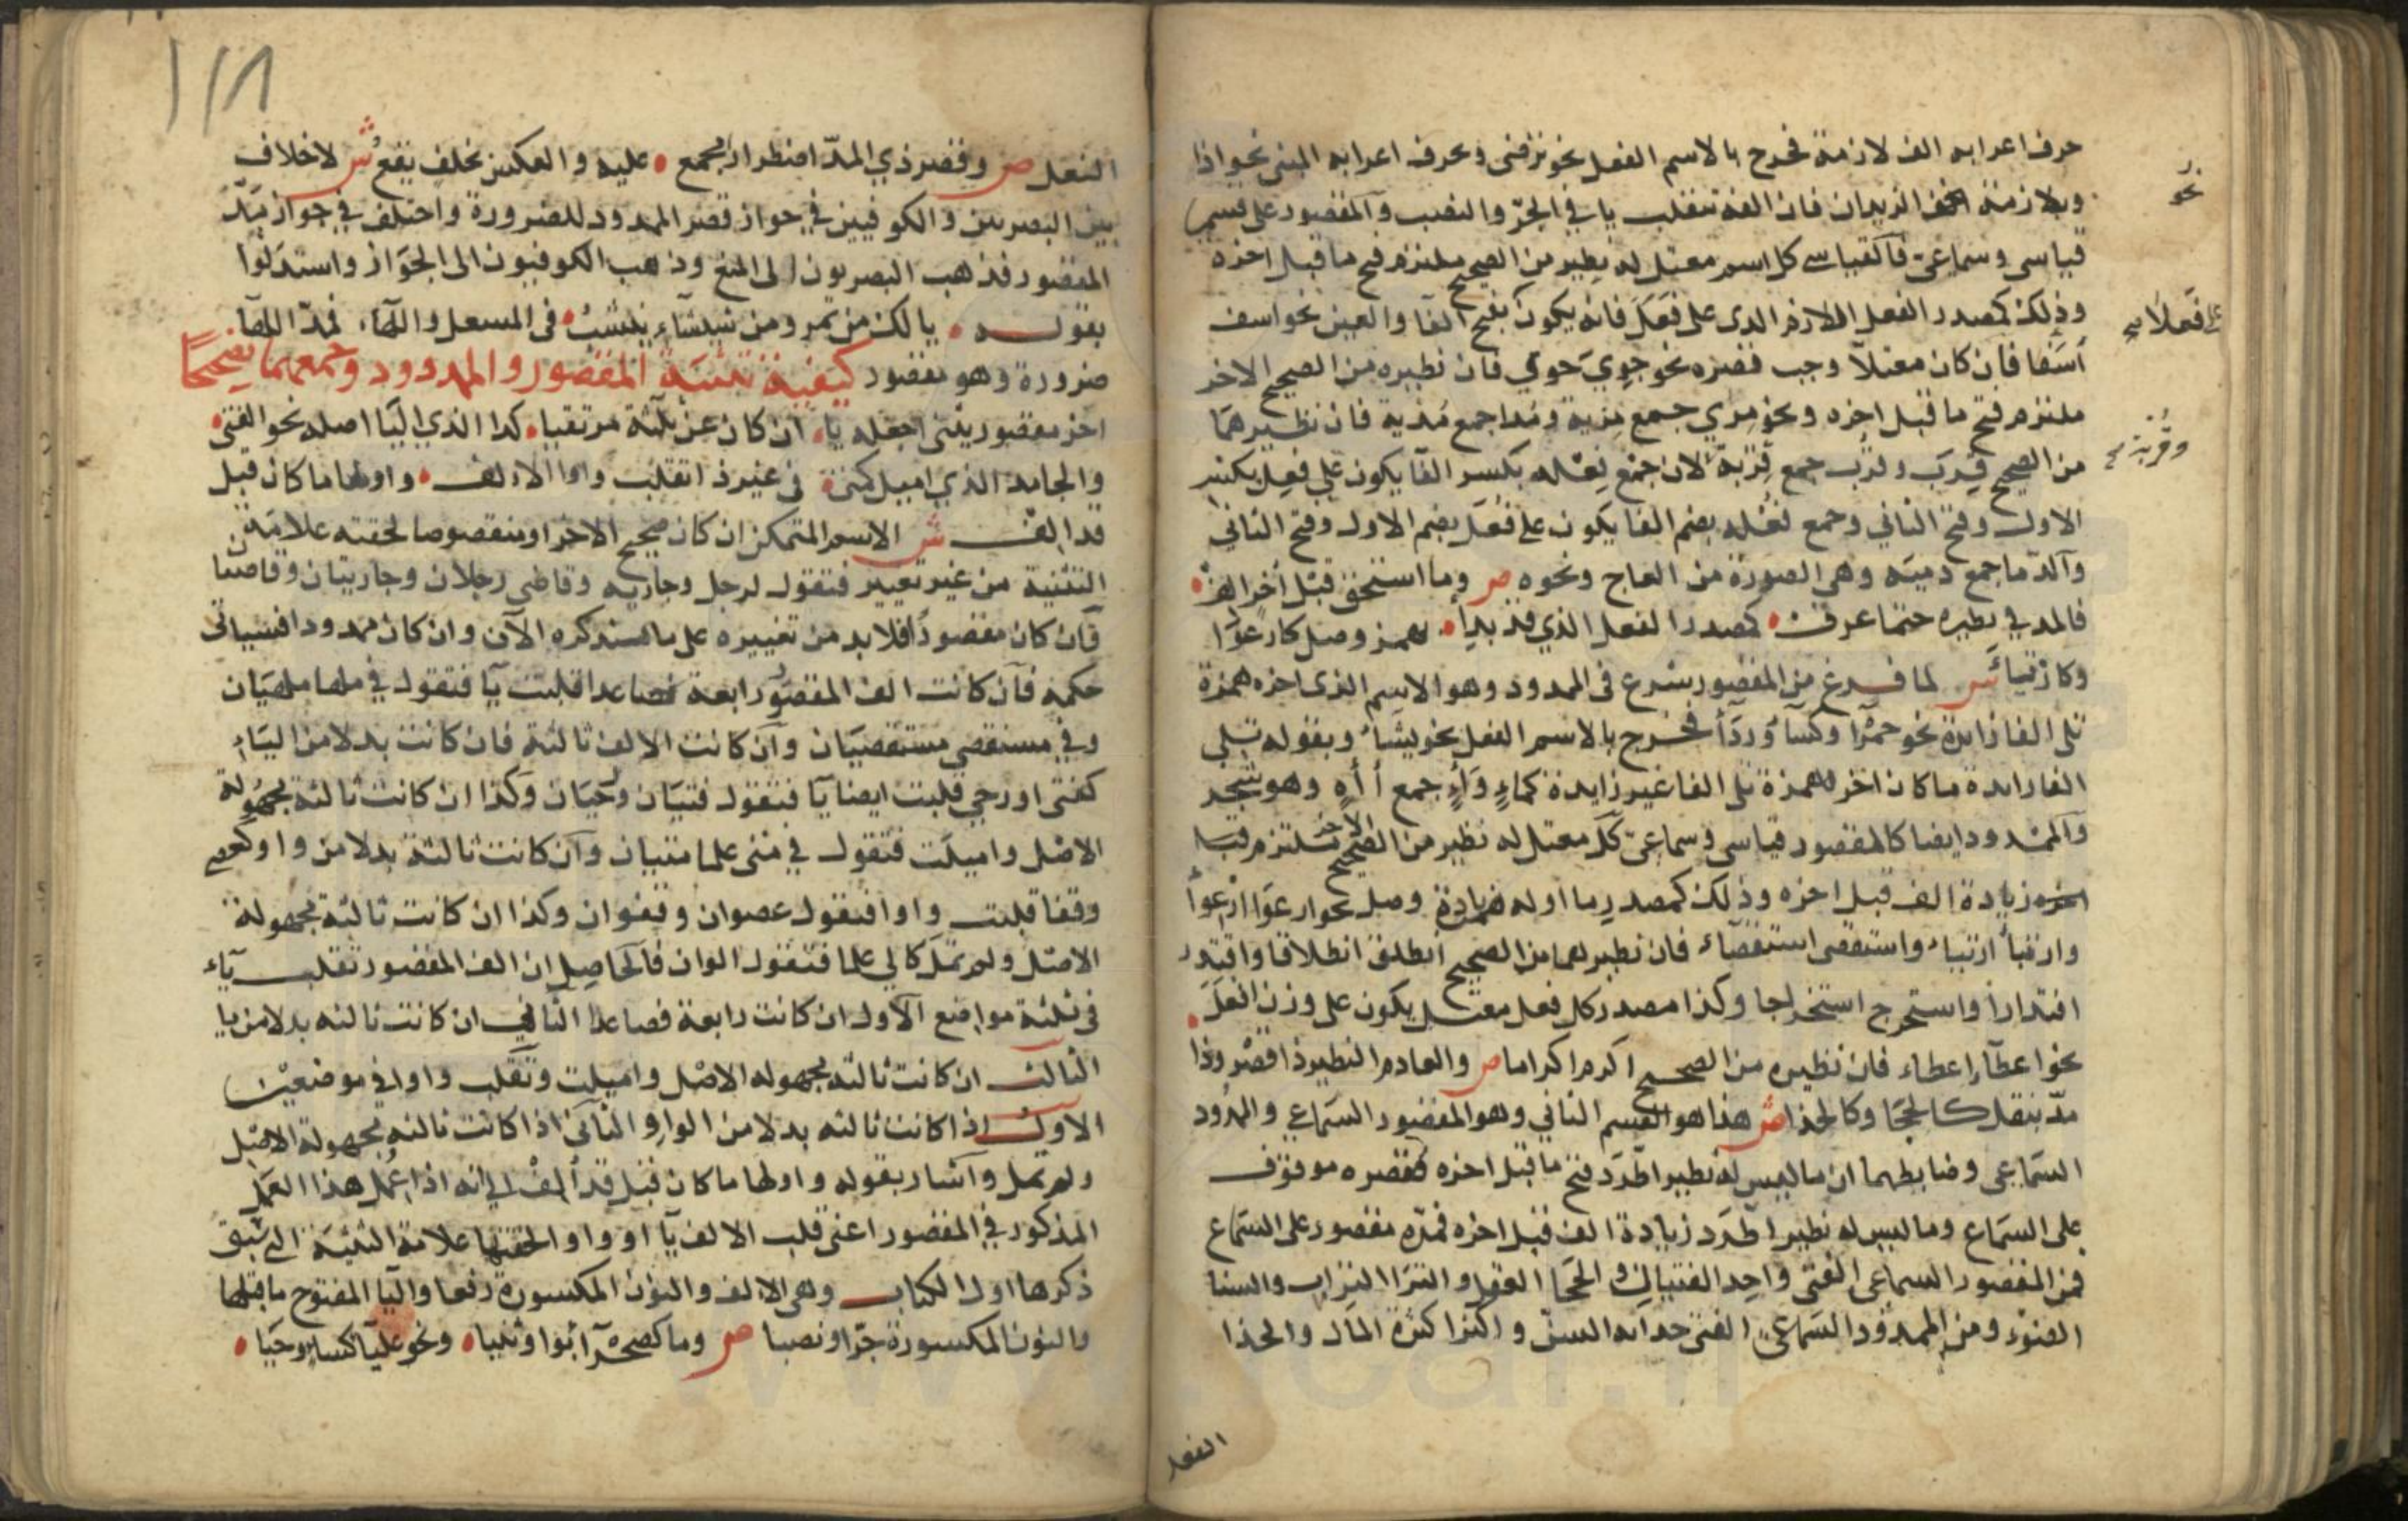 حرف اعرابه الف لازمة فخرج بالاسم الفعل نحو يرضى وبحرف اعرابه المبنى نحو اذا
وبلازمة الزيدان فان الفه تنقلب يا في الجرّ والنصب والمقصور على قسمين
قياسى وسماعىّ فالقياسى كل اسم معتل له نظير من الصحيح ملتزم فتح ما قبل اخره
وذلك كمصدر الفعل اللازم الذى على فَعِلَ فانه يكون بفتح الفا والعين نحو اسف
أسَفا فان كان معتلا وجب قصره نحو جوِيَ جوي فان نظيره من الصحيح الاخر
ملتزم فتح ما قبل اخره ونحو مِرى جمع مِرية ومُدا جمع مُدية فان نظيرهما
من الصحيح قِرَب وقُرَب جمع قِرْبة لان جمع فِعْله بكسر الفا يكون على فِعَل بكسر
الاول وفتح الثاني وجمع فُعْله بضم الفا يكون على فُعَل بضم الاول وفتح الثاني
والدّما جمع دمية وهى الصورة من العاج ونحوه ص وما استحق قبل آخر الف
فالمد في نظيره حتما عرف كمصدر الفعل الذي قد بدأ بهمز وصل كارعوا
وكارتيا ش لما فرغ من المقصور شرع فى الممدود وهو الاسم الذى اخره همزة
تلى الفا زايدة نحو حمرا وكسآ وردآ فخرج بالاسم الفعل نحو يشاء وبقوله تلى
الفا زايدة ما كان اخره همزة تلى الفا غير زايدة كماءٍ وآءٍ جمع أاةٍ وهو شجر
والممدود ايضا كالمقصور قياسى وسماعىّ كل معتل له نظير من الصحيح الآخر ملتزم فيه
زيادة الف قبل اخره وذلك كمصدر ما اوله همزة وصل نحو ارعوَا ارعوأ
وارتيأ ارتياء واستقصى استقصاء فان نظيرهما من الصحيح انطلق انطلاقا واقتدر
اقتدارا واستخرج استخراجا وكذا مصدر كل فعل معتل يكون على وزن افعَلَ
نحو اعطآ إعطاء فان نظيره من الصحيح اكرم اكراما ص والعادم النظير ذا قصر وذا
مدّ بنقل كالحجا وكالحذا ش هذا هو القسم الثاني وهو المقصور السماعي والممدود
السماعي وضابطهما ان ما ليس له نظير اطّرد فتح ما قبل اخره فقصره موقوف
على السماع وما ليس له نظير اطّرد زيادة الف قبل اخره فمدّه مقصور على السماع
فمن المقصور السماعى الفتى واحد الفتيان والحجا العقل والثرا التراب والسنا
الضوء ومن الممدود السماعىّ الفتى حداثه السنّ و الثرا كثرة المال والحذا
النعل
نحو
وقُربة
النعل ص وقصر ذي المدّ اضطرارا مجمع عليه والعكس بخلف يقع ش لا خلاف
بين البصريين والكوفيين في جواز قصر الممدود للضرورة واختلف في جواز مَدّ
المقصور فذهب البصريون الى المنع وذهب الكوفيون الى الجواز واستدلوا
بقوله يا لك من تمر ومن شيشآءِ ينشب فى المسعل واللهآء فمدّ اللهآ
ضرورة وهو مقصور كيفية تثنية المقصور والممدود وجمعهما تصحيحًا
اخر مقصور يثنى اجعله يا ان كان عن ثلثة مرتقيا كذا الذي اليا اصله نحو الفتى
والجامد الذي اميل كمتى في غير ذا تقلب واوا الالف واولها ما كان قبل
قد الف ش الاسم المتمكن ان كان صحيح الاخر او منقوصا لحقته علامة
التثنية من غير تغيير فتقول لرجل وجاريه وقاضى رجلان وجاريتان وقاضيان
وان كان مقصورا فلا بد من تغييره على ما سنذكره الآن وان كان ممدودا فسياتى
حكمه فان كانت الف المقصور رابعة فصاعدا قلبت يآ فتقول في ملها ملهيان
وفي مستقصى مستقصيَان وان كانت الالف ثالثة فان كانت بدلا من اليَاءِ
كفتى او رحى قلبت ايضا يآ فتقول فتيَان ورحيَان وكذا ان كانت ثالثة مجهولة
الاصْل واميلت فتقول في متى علما متيان وان كانت ثالثة بدلا من واو كعصى
وقفا قلبت واوا فتقول عصوان وقفوان وكذا ان كانت ثالثة مجهولة
الاصْل ولم تمَل كالى علما فتقول الوان فالحاصل ان الف المقصور تقلب يآء
في ثلثة مواضع الاول ان كانت رابعة فصاعدا الثاني ان كانت ثالثه بدلا من يا
الثالث ان كانت ثالثه مجهوله الاصْل واميلت وتقلب واوا في موضعين
الاول اذا كانت ثالثه بدلا من الواو الثاني اذا كانت ثالثه مجهولة الاصْل
ولم تمل واشار بقوله واولها ما كان قبل قد الف الى انه اذا عُمل هذا العمَل
المذكور في المقصور اعنى قلب الالف يآ او واوا لحقتها علامة التثنية التى سَبق
ذكرها اول الكتاب وهى الالف والنون المكسورة رفعا واليا المفتوح ما قبلها
والنون المكسورة جرّا ونصبا ص وما كصحرآ بواو ثنيا ونحو عليآ كساء وحيَا